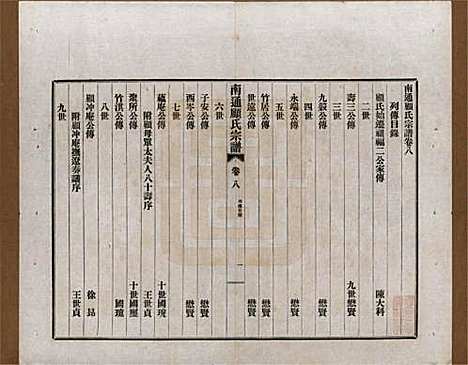 南通顧氏宗譜卷八
列傳目錄
顧氏始遷祖福二公家傳 陳大科
二世
壽三公傳 九世懋賢
三世
九穀公傳 懋賢
四世
永端公傳 懋賢
五世
竹居公傳 懋賢
世遠公傳 懋賢
南通顧氏宗譜 卷八 一
六世
子安公傳 懋賢
西岑公傳 懋賢
七世
蘊庵公傳 十世國琬
附顧母單太夫人八十壽序 王世貞
衆所公傳 十世國璽
竹淇公傳 國琬
八世
顧冲庵公傳 徐昂
附顧冲庵撫遼奏議序 王世貞
九世